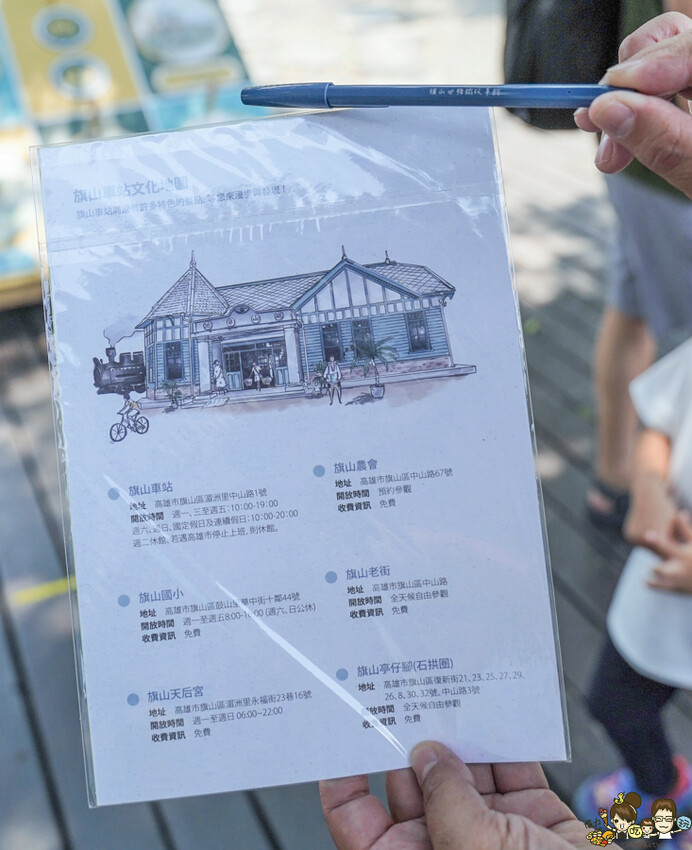 旗山車站文化地圖
旗山車站
地址 高雄市旗山區湄洲里中山路1號
開放時間 週一、三至週五:10:00-19:00
週六、週日、國定假日及連續假日:10:00-20:00
週二休館、若遇高雄市停止上班,則休館。
旗山國小
地址 高雄市旗山區鼓山里華中街十鄰44號
開放時間 週一至週五8:00-16:00 (週六、日公休)
收費資訊 免費
旗山天后宮
地址 高雄市旗山區湄洲里永福街23巷16號
開放時間 週一至週日 06:00~22:00
收費資訊 免費
旗山農會
地址 高雄市旗山區中山路67號
開放時間 預約參觀
收費資訊 免費
旗山老街
地址 高雄市旗山區中山路
開放時間 全天候自由參觀
收費資訊 免費
旗山亭仔腳(石拱圈)
地址 高雄市旗山區復新街21, 23, 25, 27, 29,
26, 8, 30, 32號, 中山路3號
開放時間 全天候自由參觀
收費資訊 免費